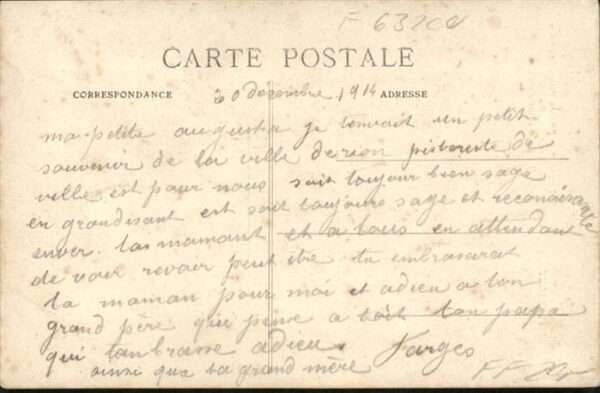 F 63
CARTE POSTALE
CORRESPONDANCE 20 décembre 1914 ADRESSE
ma petite augusta je tenvait un petit
souvenir de la ville de rion de
ville est pour nous soit toujour bien sage
en grandisant est soit toujours sage et reconaisante
enver ta maman et a tous en attendant
de voir revoir peut être tu embrasarat
ta maman pour moi et adieu a ton
grand père qui pense a toit ton papa
qui tanbrasse adieu Farges
ainsi qua ta grand mère